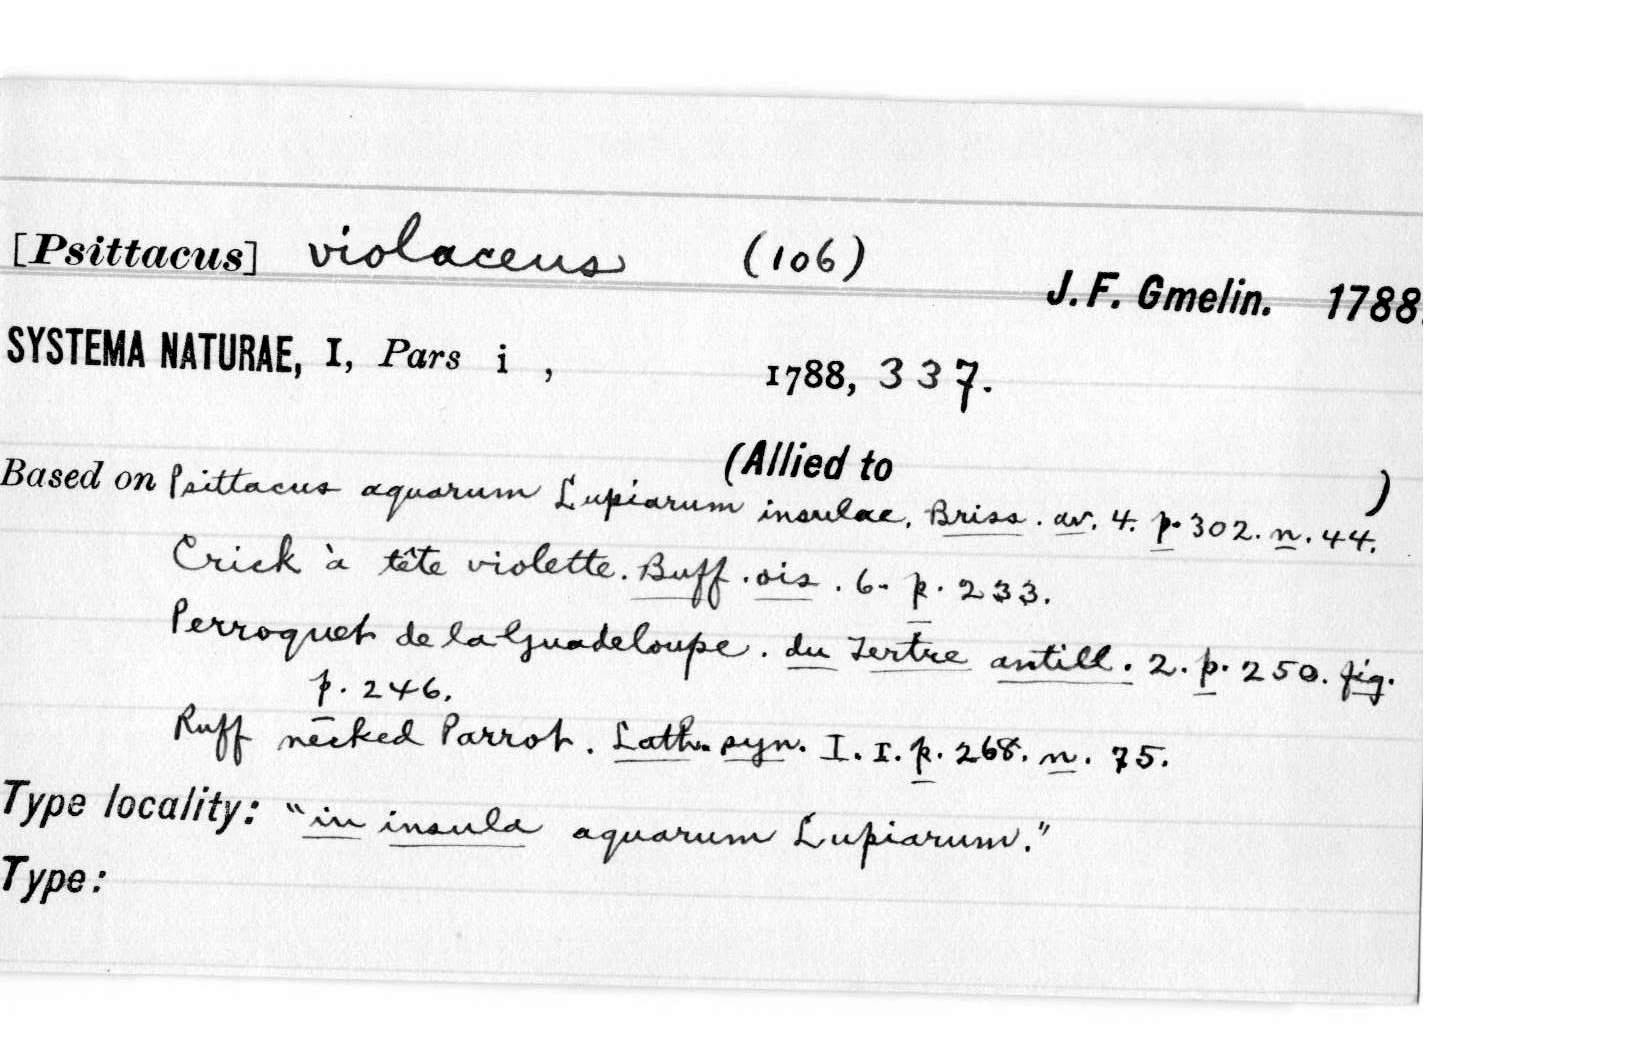 [Psittacus] violaceus (106)
J. F. Gmelin. 1788.
SYSTEMA NATURAE, I, Pars i , 1788, 337.
(Allied to )
Based on Psittacus aquarum Lupiarum insulae. Briss. av. 4. p. 302. n. 44.
Crick à tête violette. Buff. ois. 6. p. 233.
Perroquet de la Guadeloupe. du Tertre antill. 2. p. 250. fig.
p. 246.
Ruff necked Parrot. Lath. syn. I. I. p. 268. n. 75.
Type locality: "in insula aquarum Lupiarum."
Type: